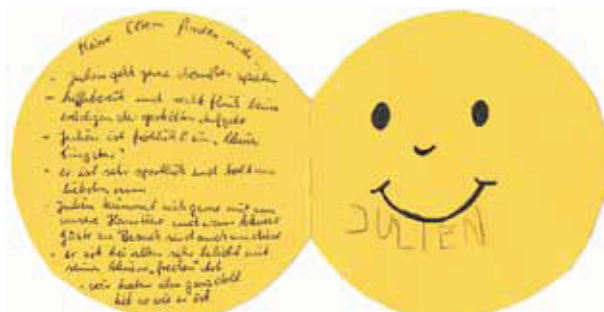 Meine Eltern finden mich
- Julien geht gerne draußen spielen
- hilfsbereit und recht fleißig beim
erledigen der gestellten Aufgabe
- Julien ist fröhlich & ein "kleiner
- er ist sehr sportlich und tobt am
liebsten rum
Julien kümmert sich gerne mit um
unsere Haustiere und wenn
Gäste zu Besuch sind auch um diese
- er ist bei allen sehr beliebt mit
seiner kleinen "frechen" Art
- wir haben ihn ganz doll
lieb so wie er ist
JULIEN